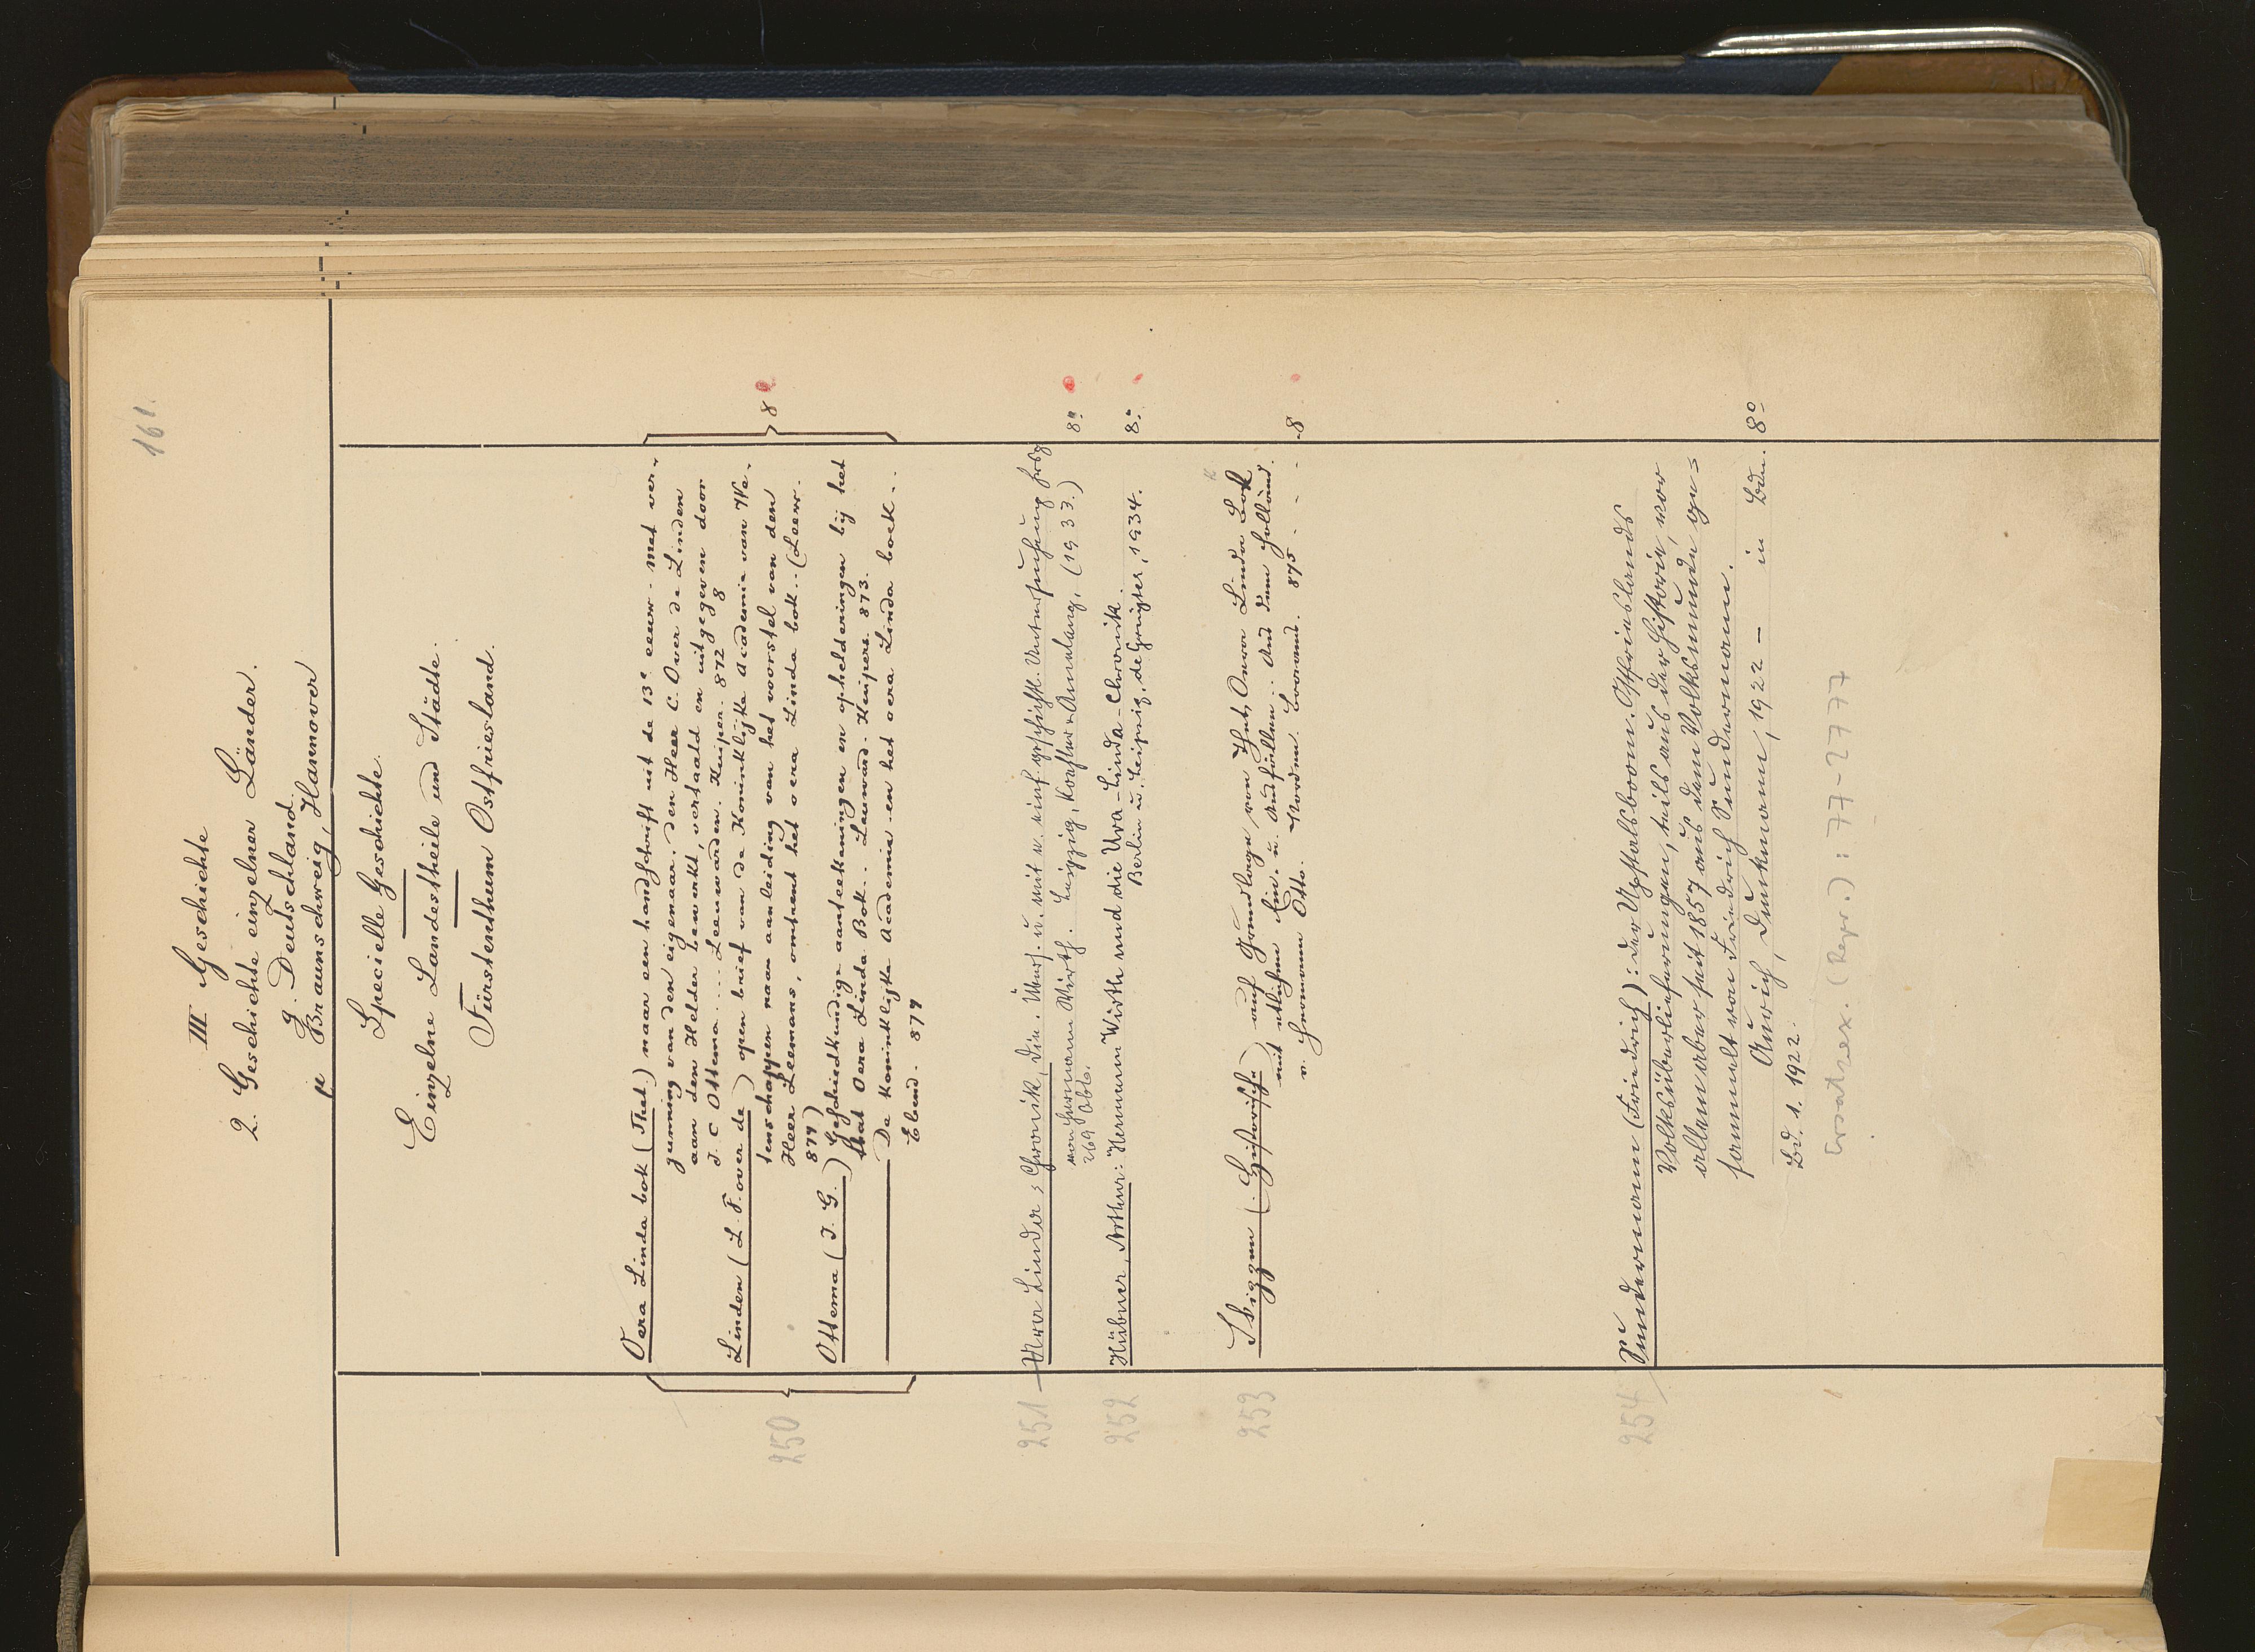 161.
III Geschichte
2. Geschichte einzelner Länder.
g. Deutschland.
μ Braunschweig, Hannover
Specielle Geschichte.
Einzelne Landestheile und Städte.
Fürstenthum Ostfriesland.
250
Oera Linda bok (Thet) naar een handschrift uit de 13e eeuw. Met ver-
gunning van den eigenaar, den Heer C. Over de Linden
aan den Helder bewerkt, vertaald en uitgegeven door
J. C Ottema ... Leeuwarden. Kuiper. 872 8
Linden (L. F. over de) open brief van de Koninklijke Academie van We-
tenschappen naar aanleiding van het voorstel van den
Heer Leemans, omtrent het oera Linda bok.. (Leeuw.
874)
8
Ottema (J. G.) Geschiedkundige aanteekeningen en ophelderingen bij het
that Oera Linda Bok.. Leeuward. Kuipers. 873.
De Koninklijke Academie en het oera Linda boek...
Ebend. 874
251 Ura Linda=Chronik, Die. Übers. u. mit e. einf. geschichtl. Untersuchung hrsg
von Herman Wirth. Leipzig, Koehler & Amelang, (1933.) 8°
269 Abb.
252 Hübner, Arthur: Herman Wirth und die Ura-Linda-Chronik.
Berlin u. Leipzig, de Gruyter, 1934. 8°
253 (Historisch) auf Grundlage von Thet Oera Linda Bok
mit etlichen Ein- u. Ausfällen.. Aus dem Holländ.
v. Hermann Otto. Norden. Braams. 875 - - - 8
254 Sundermann (Friedrich): Der Upstalsboom. Ostfrieslands
Volksüberlieferungen, teils aus der Historie, vor
allem aber seit 1857 aus dem Volksmunde ge=
sammelt von Friedrich Sundermann.
Aurich, Dunkmann, 1922 — in Bdn. 8°
Bd. 1. 1922.
Ersatzex. (Repr.): 77-2777